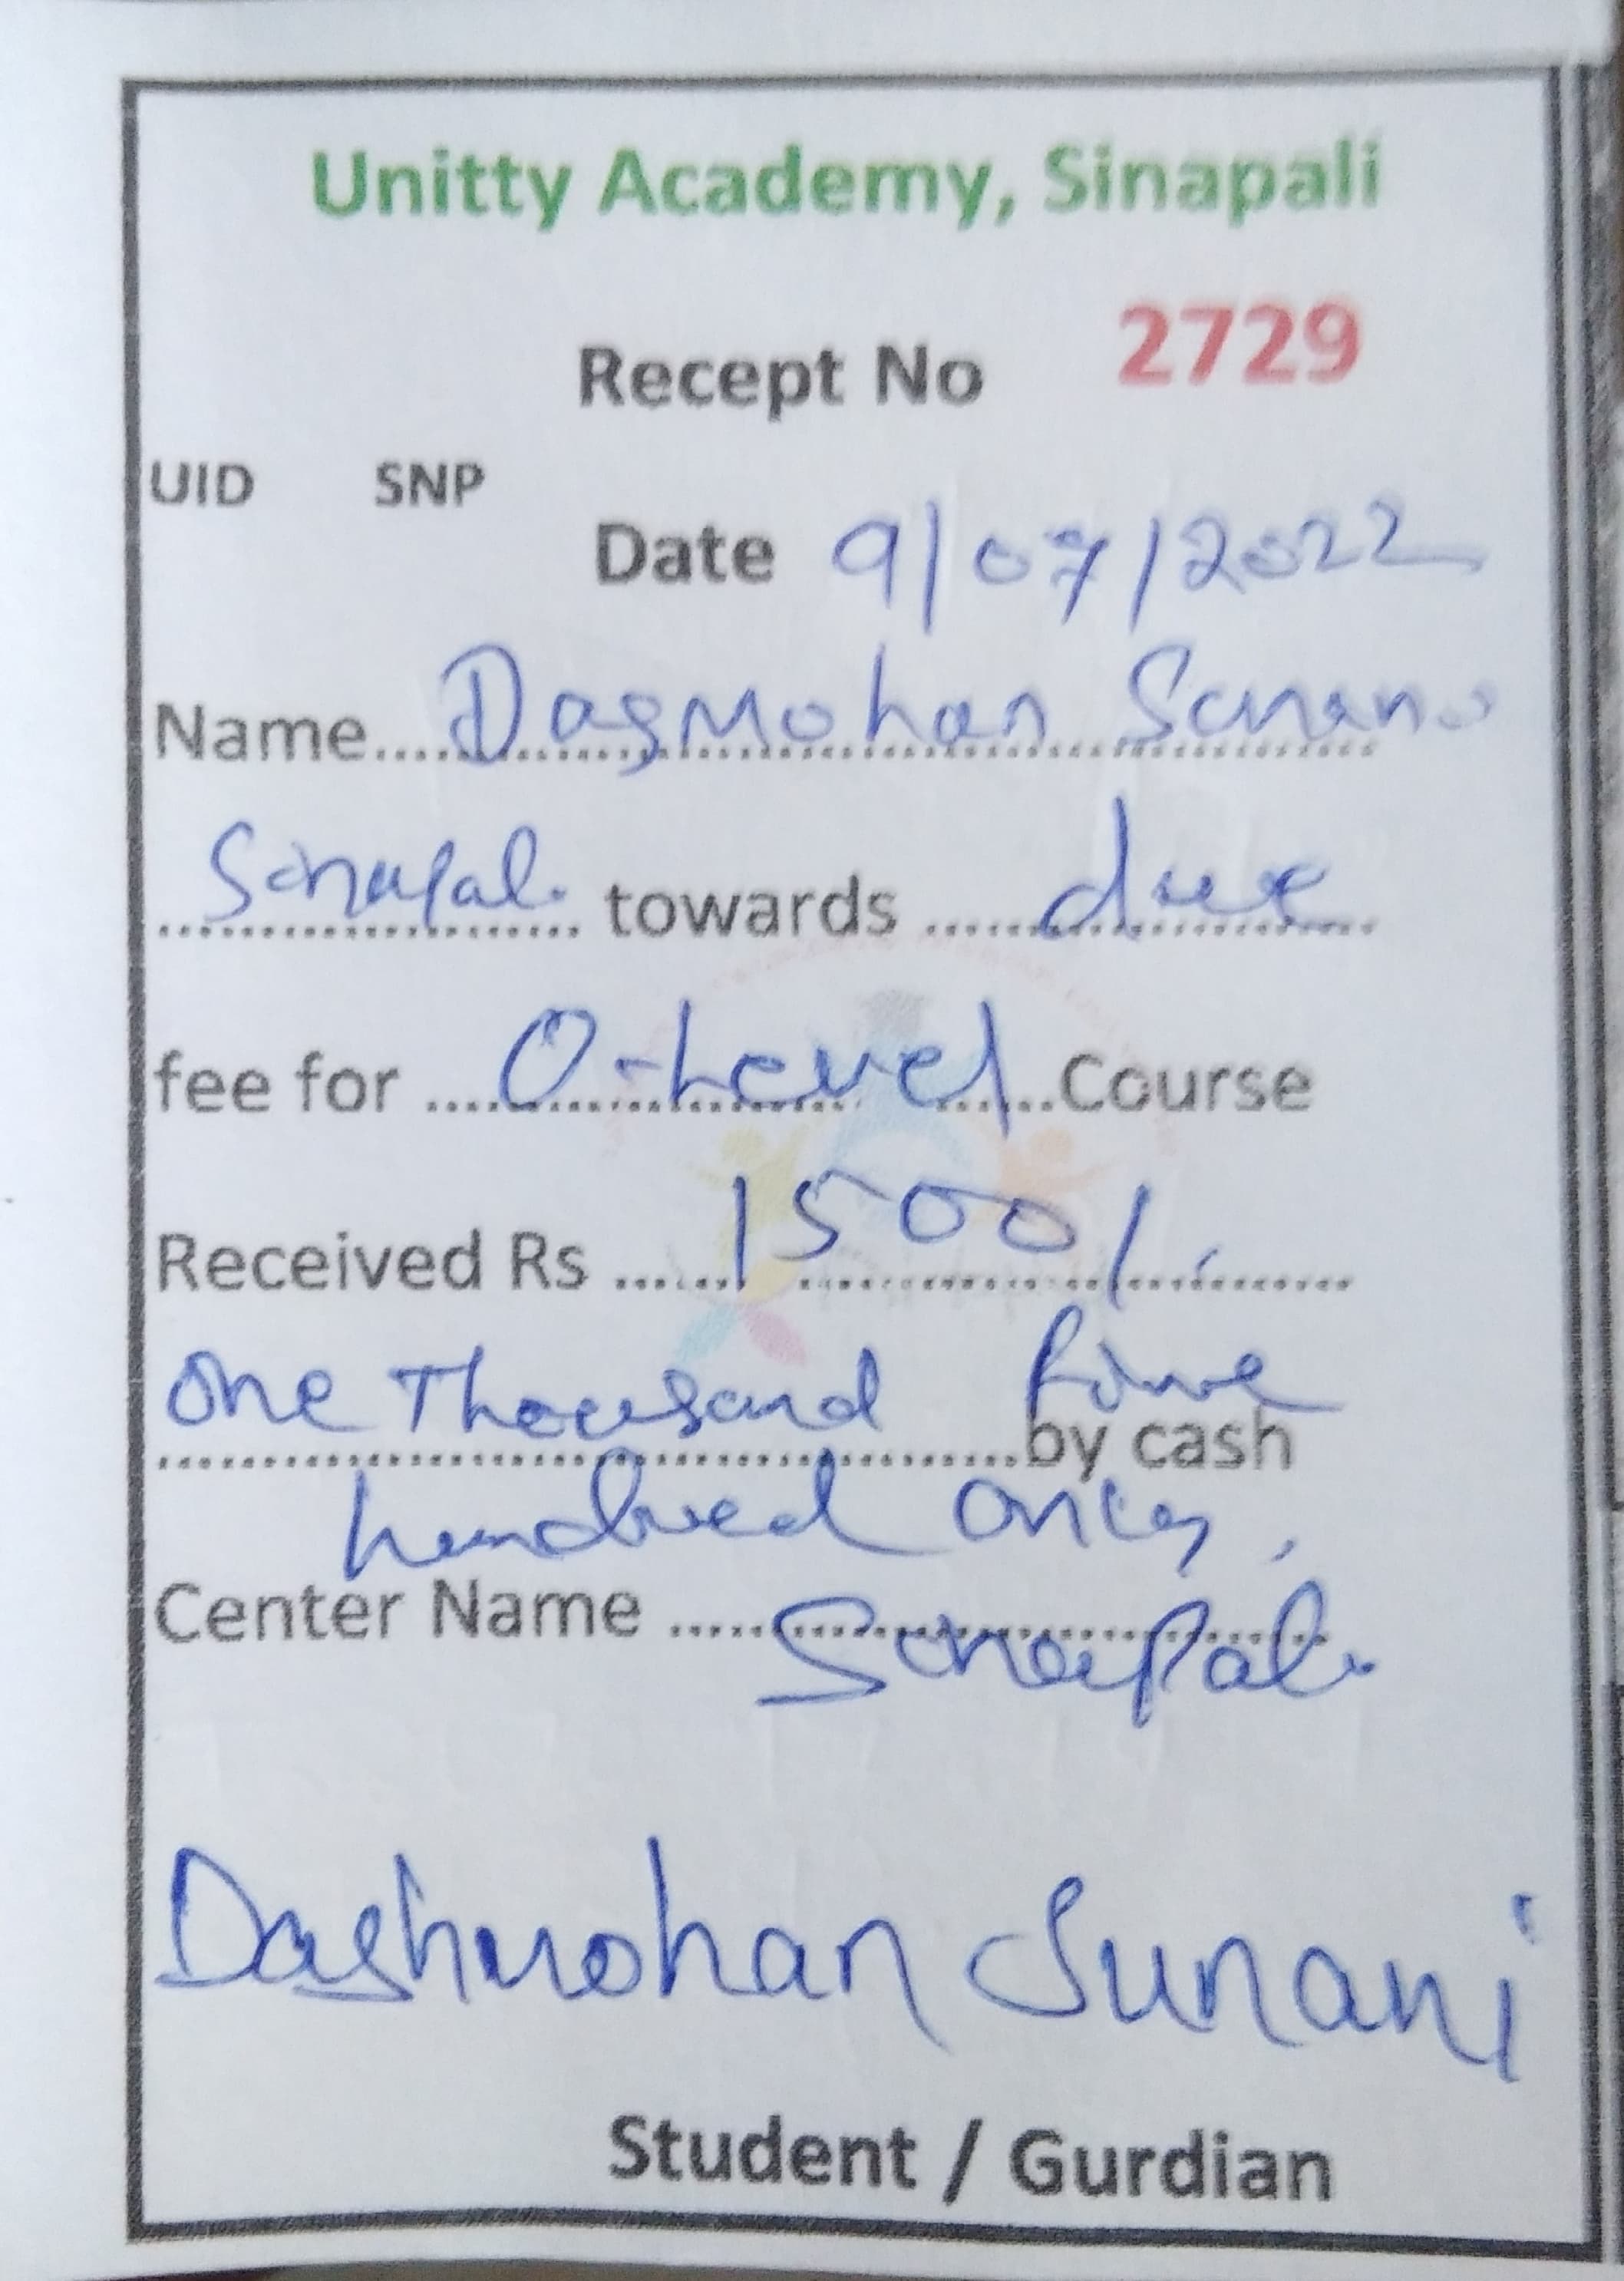 Unitty Academy, Sinapali
Recept No 2729
UID SNP
Date 9/07/2022
Name.... Dasmohan Sunani
Sinapali towards ...... due
fee for .... O-Level ....Course
Received Rs ...... 1500/-
One Thousand five
by cash
hundred only,
Center Name ..... Sinapali
Dashmohan Sunani
Student / Gurdian